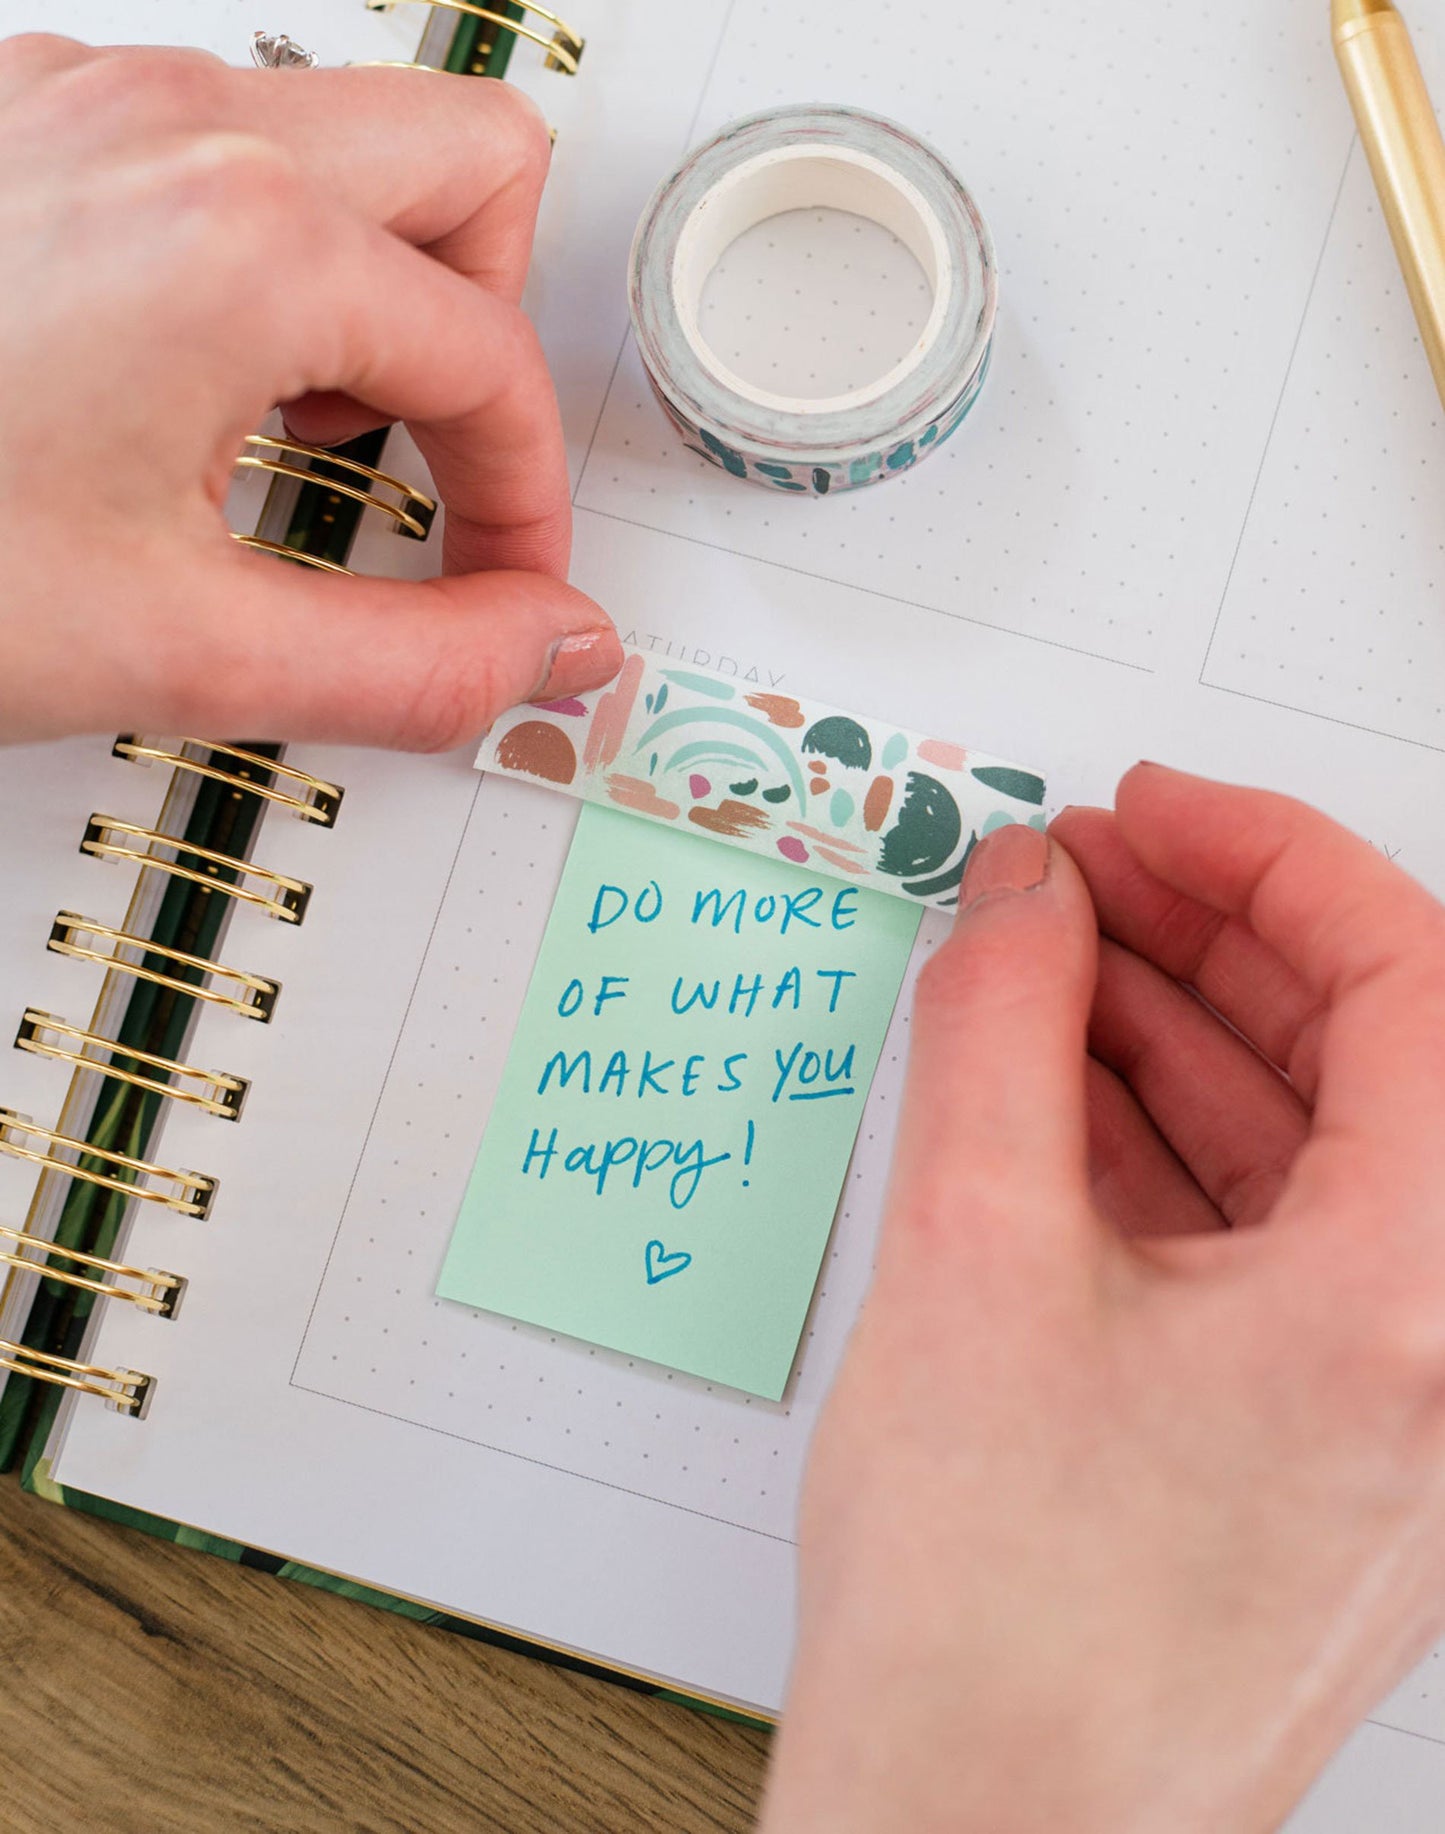 SATURDAY
DO MORE
OF WHAT
MAKES YOU
Happy!